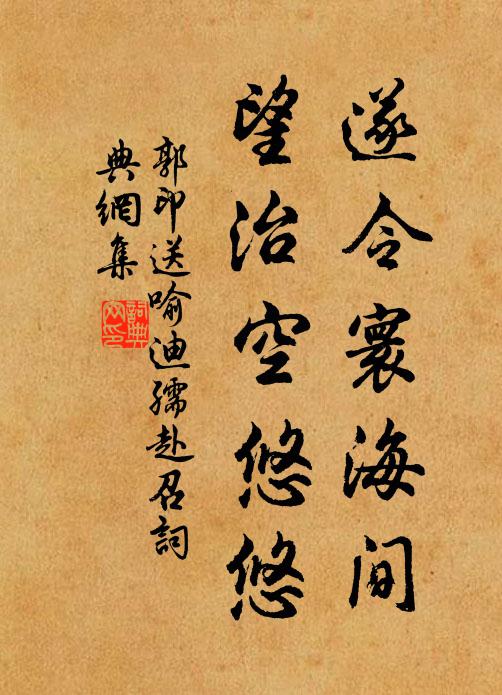 遂令寰海间
望治空悠悠
郭印送喻迪孺赴召詞
典網集
詞典
网印